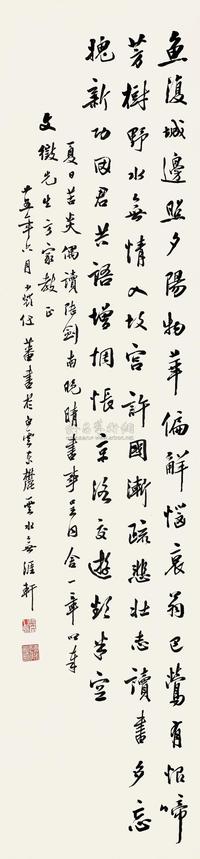 魚復城邊照夕陽物華偏解惱衰翁巴鶯有恨啼
芳樹野水無情入故宮許國漸疏悲壯志讀書多忘
愧新功因君共語增惆悵京洛交遊欲半空
夏日苦炎偶讀陸劍南晚晴書事呈同舍一章以奉
文徵先生方家教正
年六月書於白雲東麓雲水無涯軒